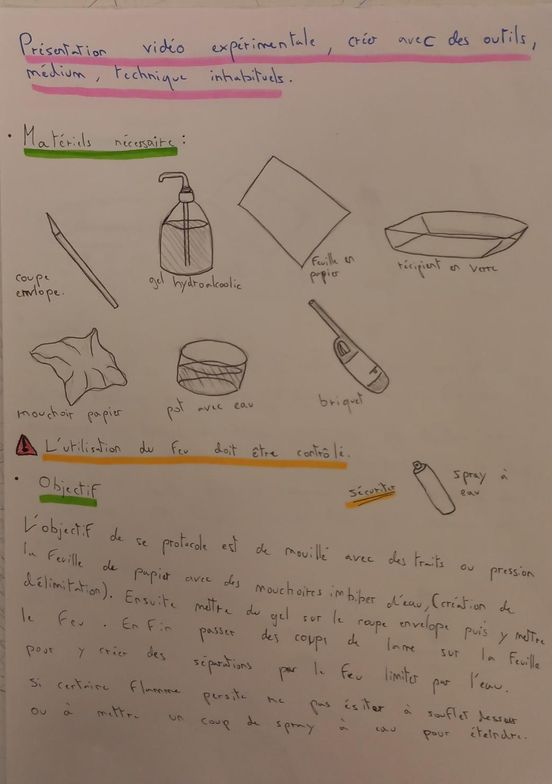 Présentation vidéo expérimentale, créer avec des outils,
médium, technique inhabituels.
• Matériels nécessaire :
coupe
envlope.
gel hydroalcoolic
Feuille en
papier
récipient en verre
mouchoir papier
pot avec eau
briquet
L'utilisation du feu doit être contrôlé.
• Objectif
sécuriter
spray à
eau
L'objectif de se protocole est de mouillé avec des traits ou pression
la feuille de papier avec des mouchoires imbiber d'eau, (création de
délimitation). Ensuite mettre du gel sur le coupe envelope puis y mettre
le feu. Enfin passer des coups de lame sur la feuille
pour y créer des séparations par le feu limiter par l'eau.
Si certaine flamme persite ne pas ésiter à souflet dessus
ou à mettre un coup de spray à eau pour éteindre.